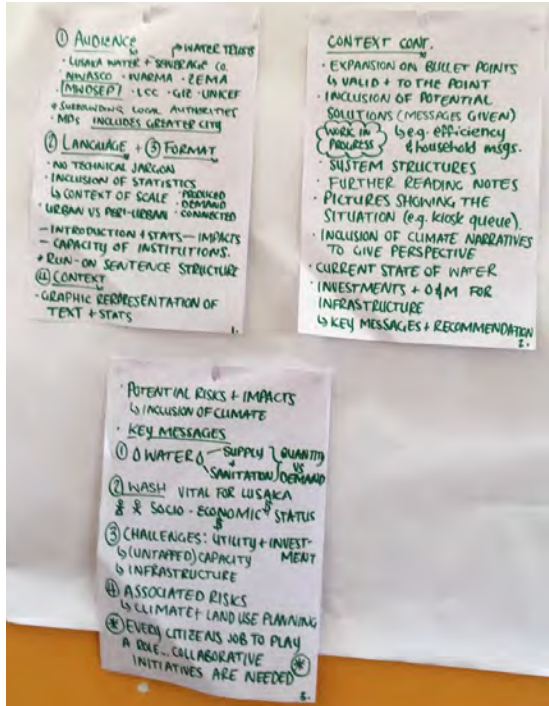 ① AUDIENCE
WATER TRUSTS
· LUSAKA WATER + SEWERAGE CO.
NWASCO · WARMA · ZEMA
· MWDSEP · LCC · GIZ · UNICEF
+ SURROUNDING LOCAL AUTHORITIES
· MPs INCLUDES GREATER CITY
② LANGUAGE + ③ FORMAT
· NO TECHNICAL JARGON
· INCLUSION OF STATISTICS
↳ CONTEXT OF SCALE · PRODUCED
DEMAND
· URBAN VS PERI-URBAN · CONNECTED
— INTRODUCTION + STATS — IMPACTS
— CAPACITY OF INSTITUTIONS.
+ RUN-ON SENTENCE STRUCTURE
④ CONTEXT
· GRAPHIC REPRESENTATION OF
TEXT + STATS
1.
CONTEXT CONT.
· EXPANSION ON BULLET POINTS
↳ VALID + TO THE POINT
· INCLUSION OF POTENTIAL
SOLUTIONS (MESSAGES GIVEN)
WORK IN PROGRESS
↳ e.g. efficiency
+ household msgs.
· SYSTEM STRUCTURES
· FURTHER READING NOTES
· PICTURES SHOWING THE
SITUATION (e.g. kiosk queue).
· INCLUSION OF CLIMATE NARRATIVES
TO GIVE PERSPECTIVE
· CURRENT STATE OF WATER
· INVESTMENTS + O&M FOR
INFRASTRUCTURE
↳ KEY MESSAGES + RECOMMENDATION
2.
· POTENTIAL RISKS + IMPACTS
↳ INCLUSION OF CLIMATE
· KEY MESSAGES
① WATER SUPPLY + SANITATION QUANTITY VS DEMAND
② WASH VITAL FOR LUSAKA
SOCIO-ECONOMIC STATUS
③ CHALLENGES: UTILITY + INVEST-
MENT
↳ (UNTAPPED) CAPACITY
↳ INFRASTRUCTURE
④ ASSOCIATED RISKS
↳ CLIMATE + LAND USE PLANNING
* EVERY CITIZENS JOB TO PLAY
A ROLE... COLLABORATIVE
INITIATIVES ARE NEEDED *
3.